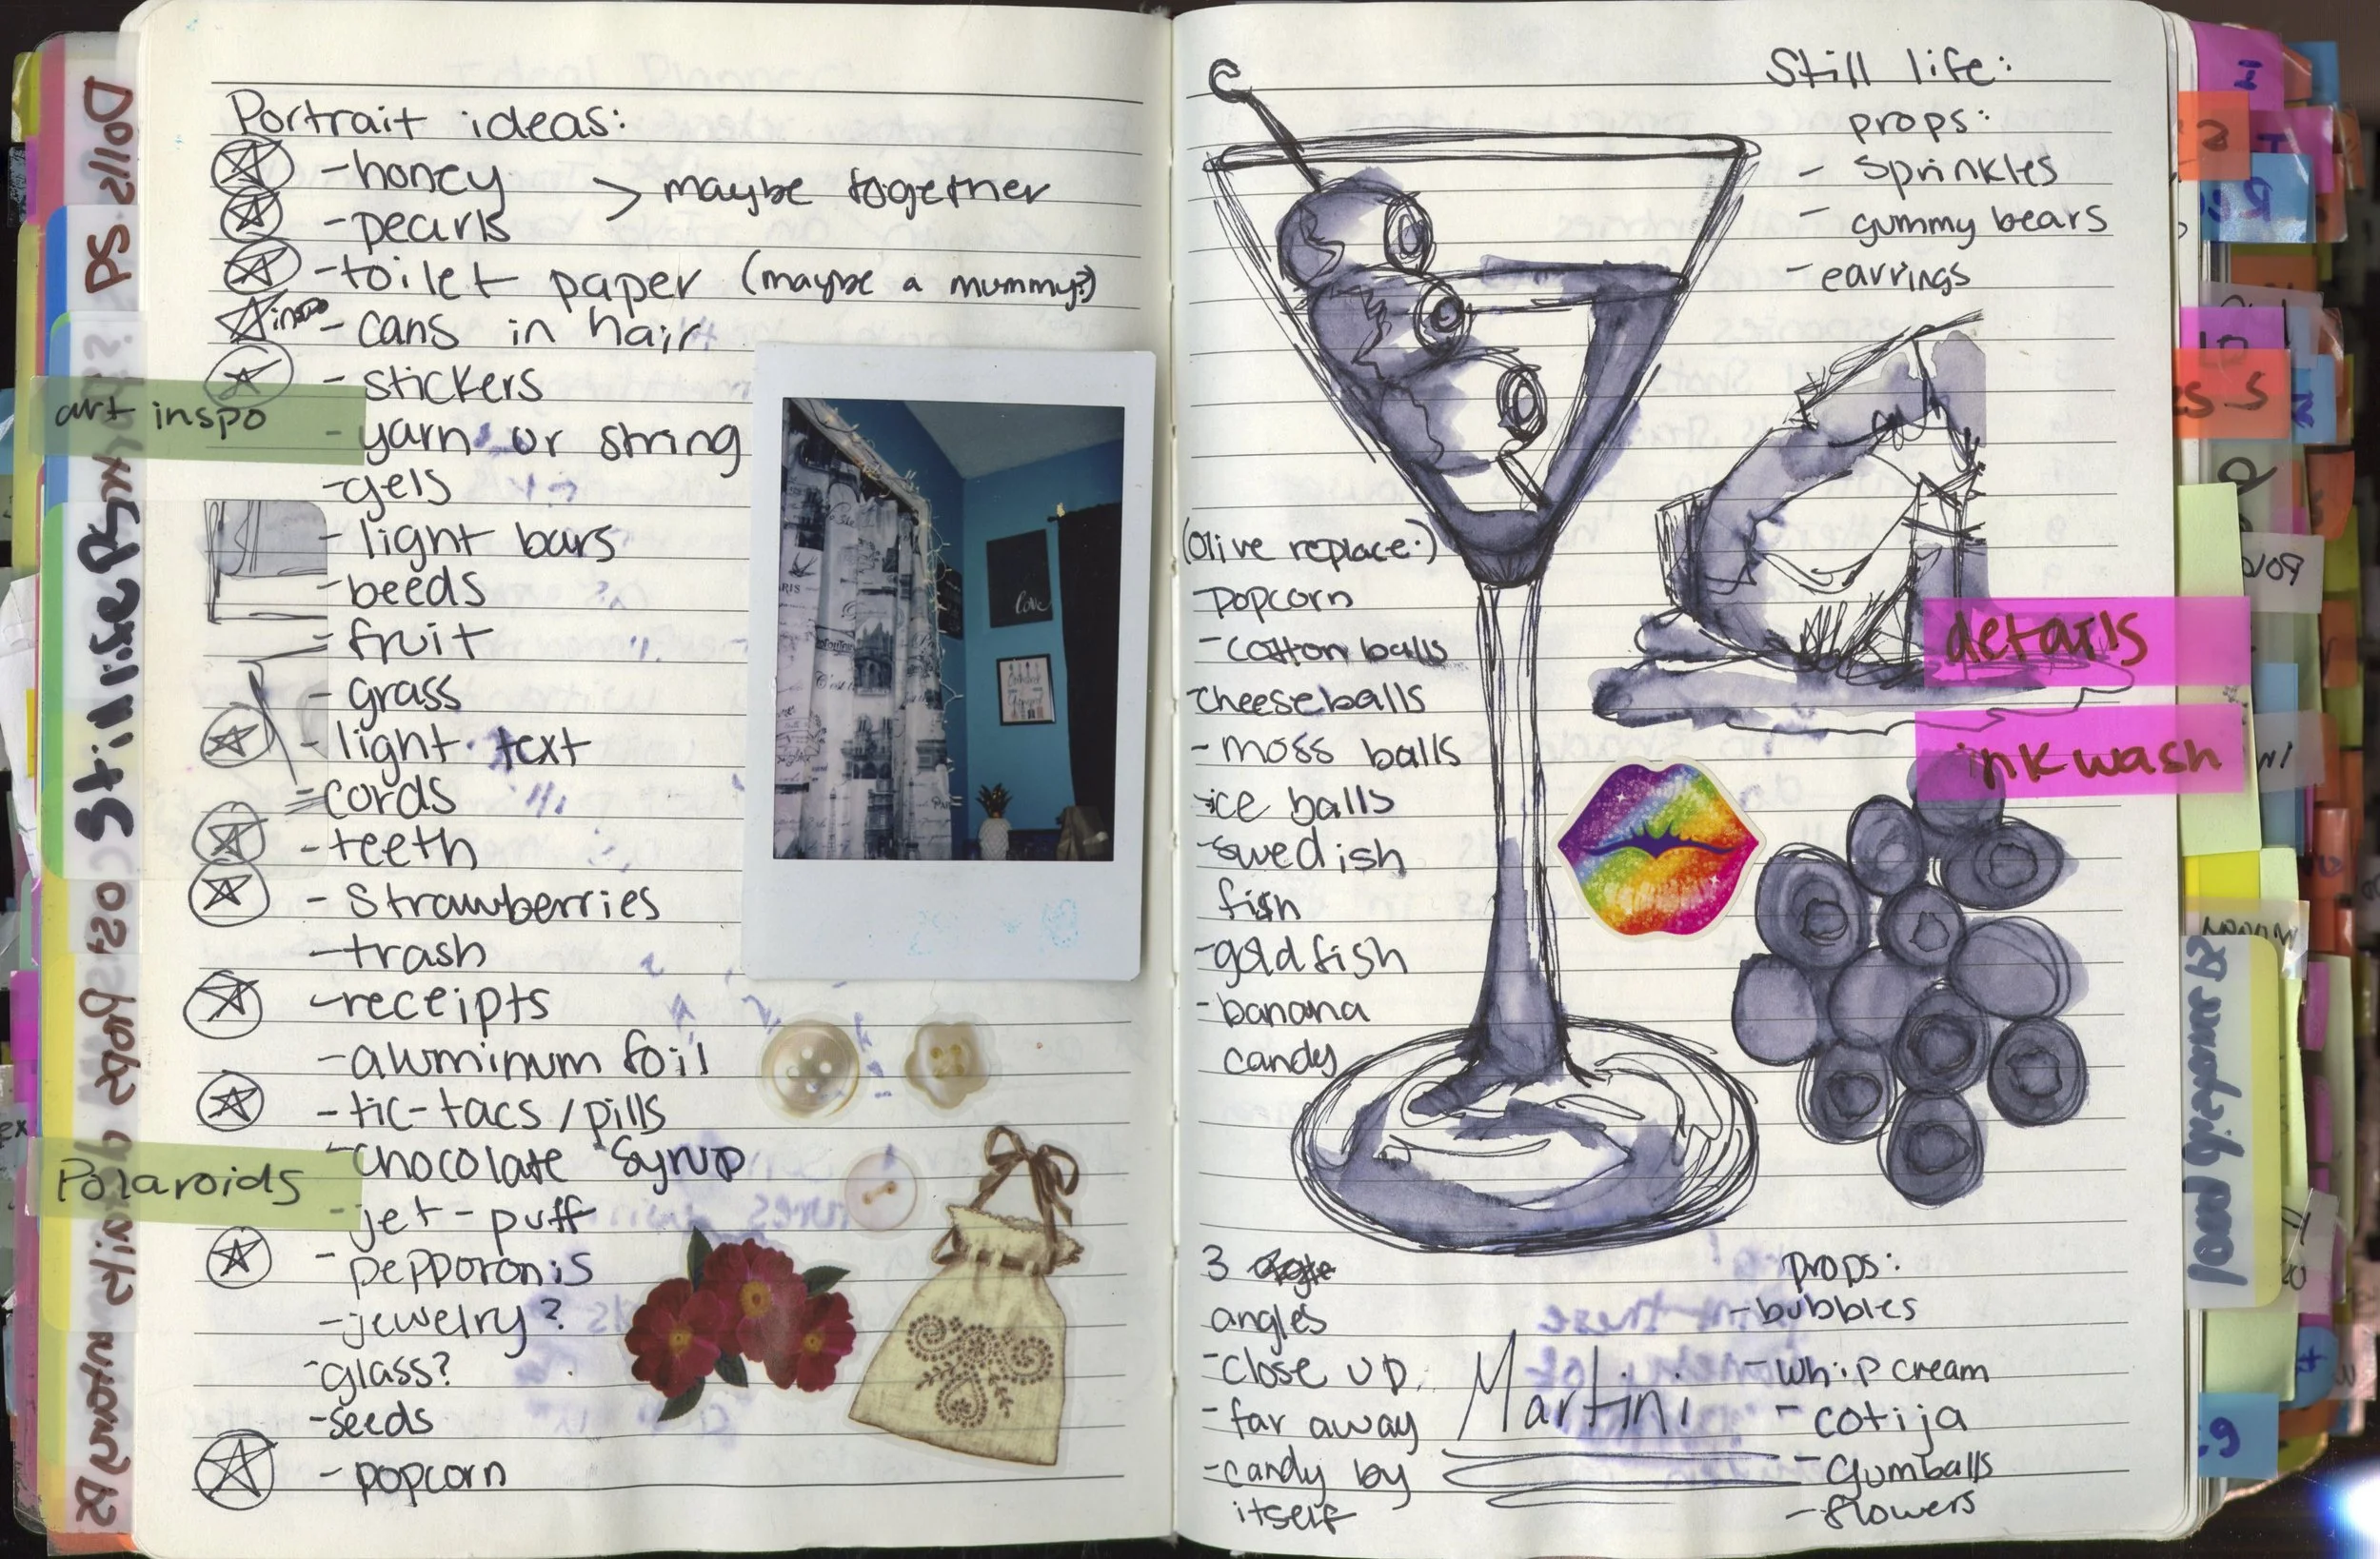 Portrait ideas:
- honey > maybe together
- pearls
- toilet paper (maybe a mummy?)
inspo - cans in hair
- stickers
art inspo
- yarn or string
- gels
- light bars
- beeds
- fruit
- grass
- light text
- cords
- teeth
- Strawberries
- trash
- receipts
- aluminum foil
- tic-tacs / pills
- chocolate Syrup
Polaroids
- jet-puff
- pepporonis
- jewelry?
- glass?
- seeds
- popcorn
love
Still life:
props:
- Sprinkles
- gummy bears
- earrings
(Olive replace:)
popcorn
- cotton balls
cheeseballs
- moss balls
- ice balls
- swedish
fish
- goldfish
- banana
candy
details
ink wash
3
angles
- close up
- far away
- candy by
itself
Martini
props:
- bubbles
- whip cream
- cotija
- Gumballs
- flowers
Dolls
PS
Still life